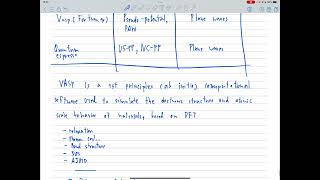 Vasp (Fortran 90) Pseudo-potential, Plane waves
PAW
Quantum US-PP, NC-PP Plane waves
espresso
VASP is a 1st principles (ab initio) computational
software used to simulate the electronic structure and atomic
scale behavior of materials, based on DFT
- relaxation
- Band structure
- DOS
- AIMD